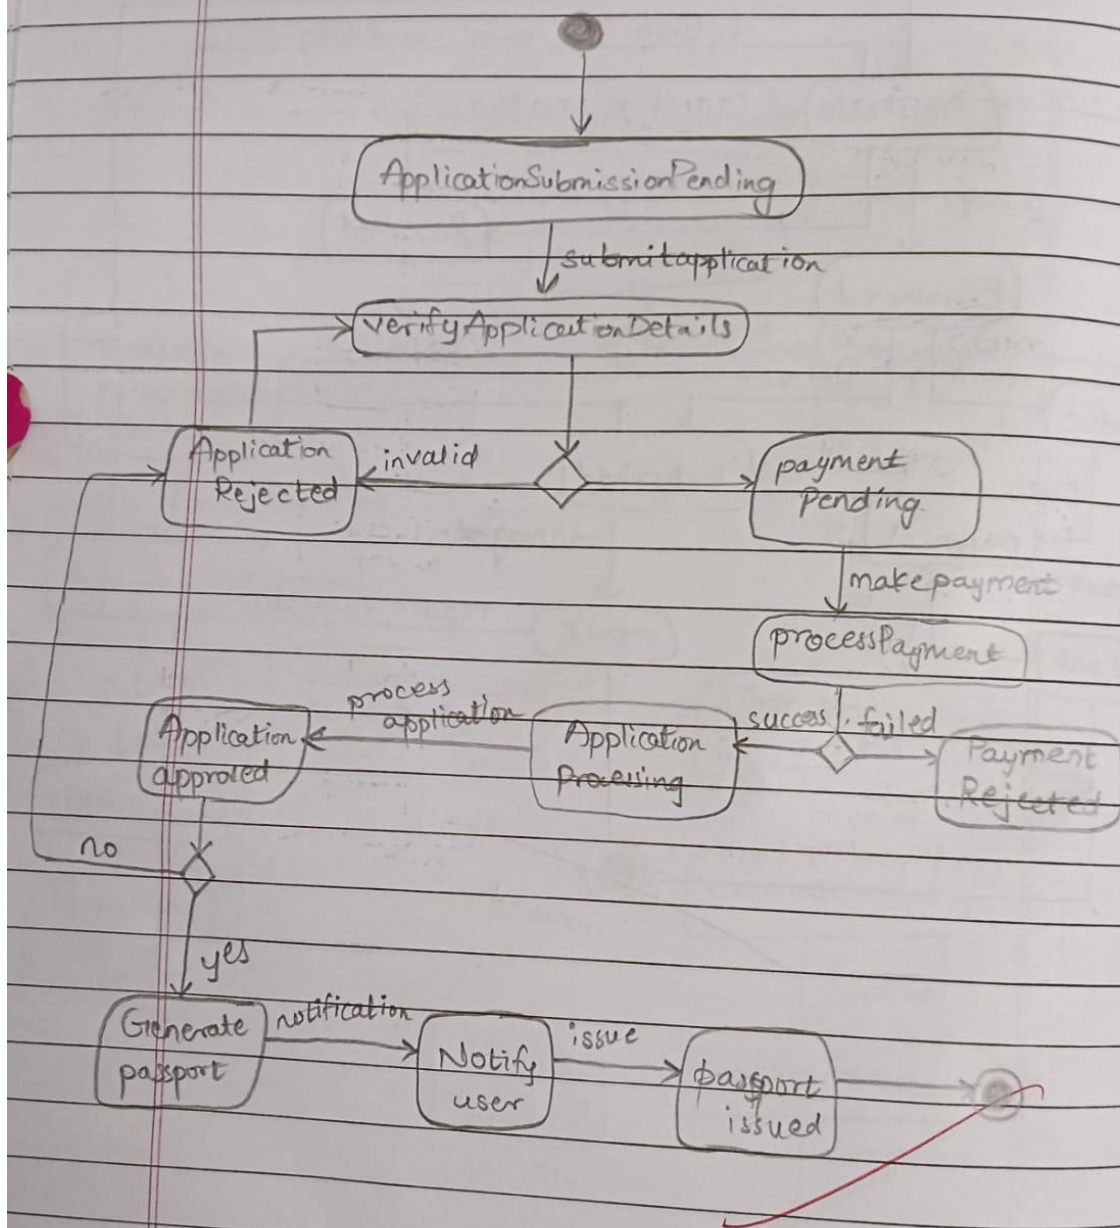 ApplicationSubmissionPending
submitapplication
verifyApplicationDetails
Application
Rejected
invalid
payment
Pending
makepayment
processPayment
success
failed
Payment
Rejected
Application
Processing
process
application
Application
approved
no
yes
Generate
passport
notification
Notify
user
issue
passport
issued